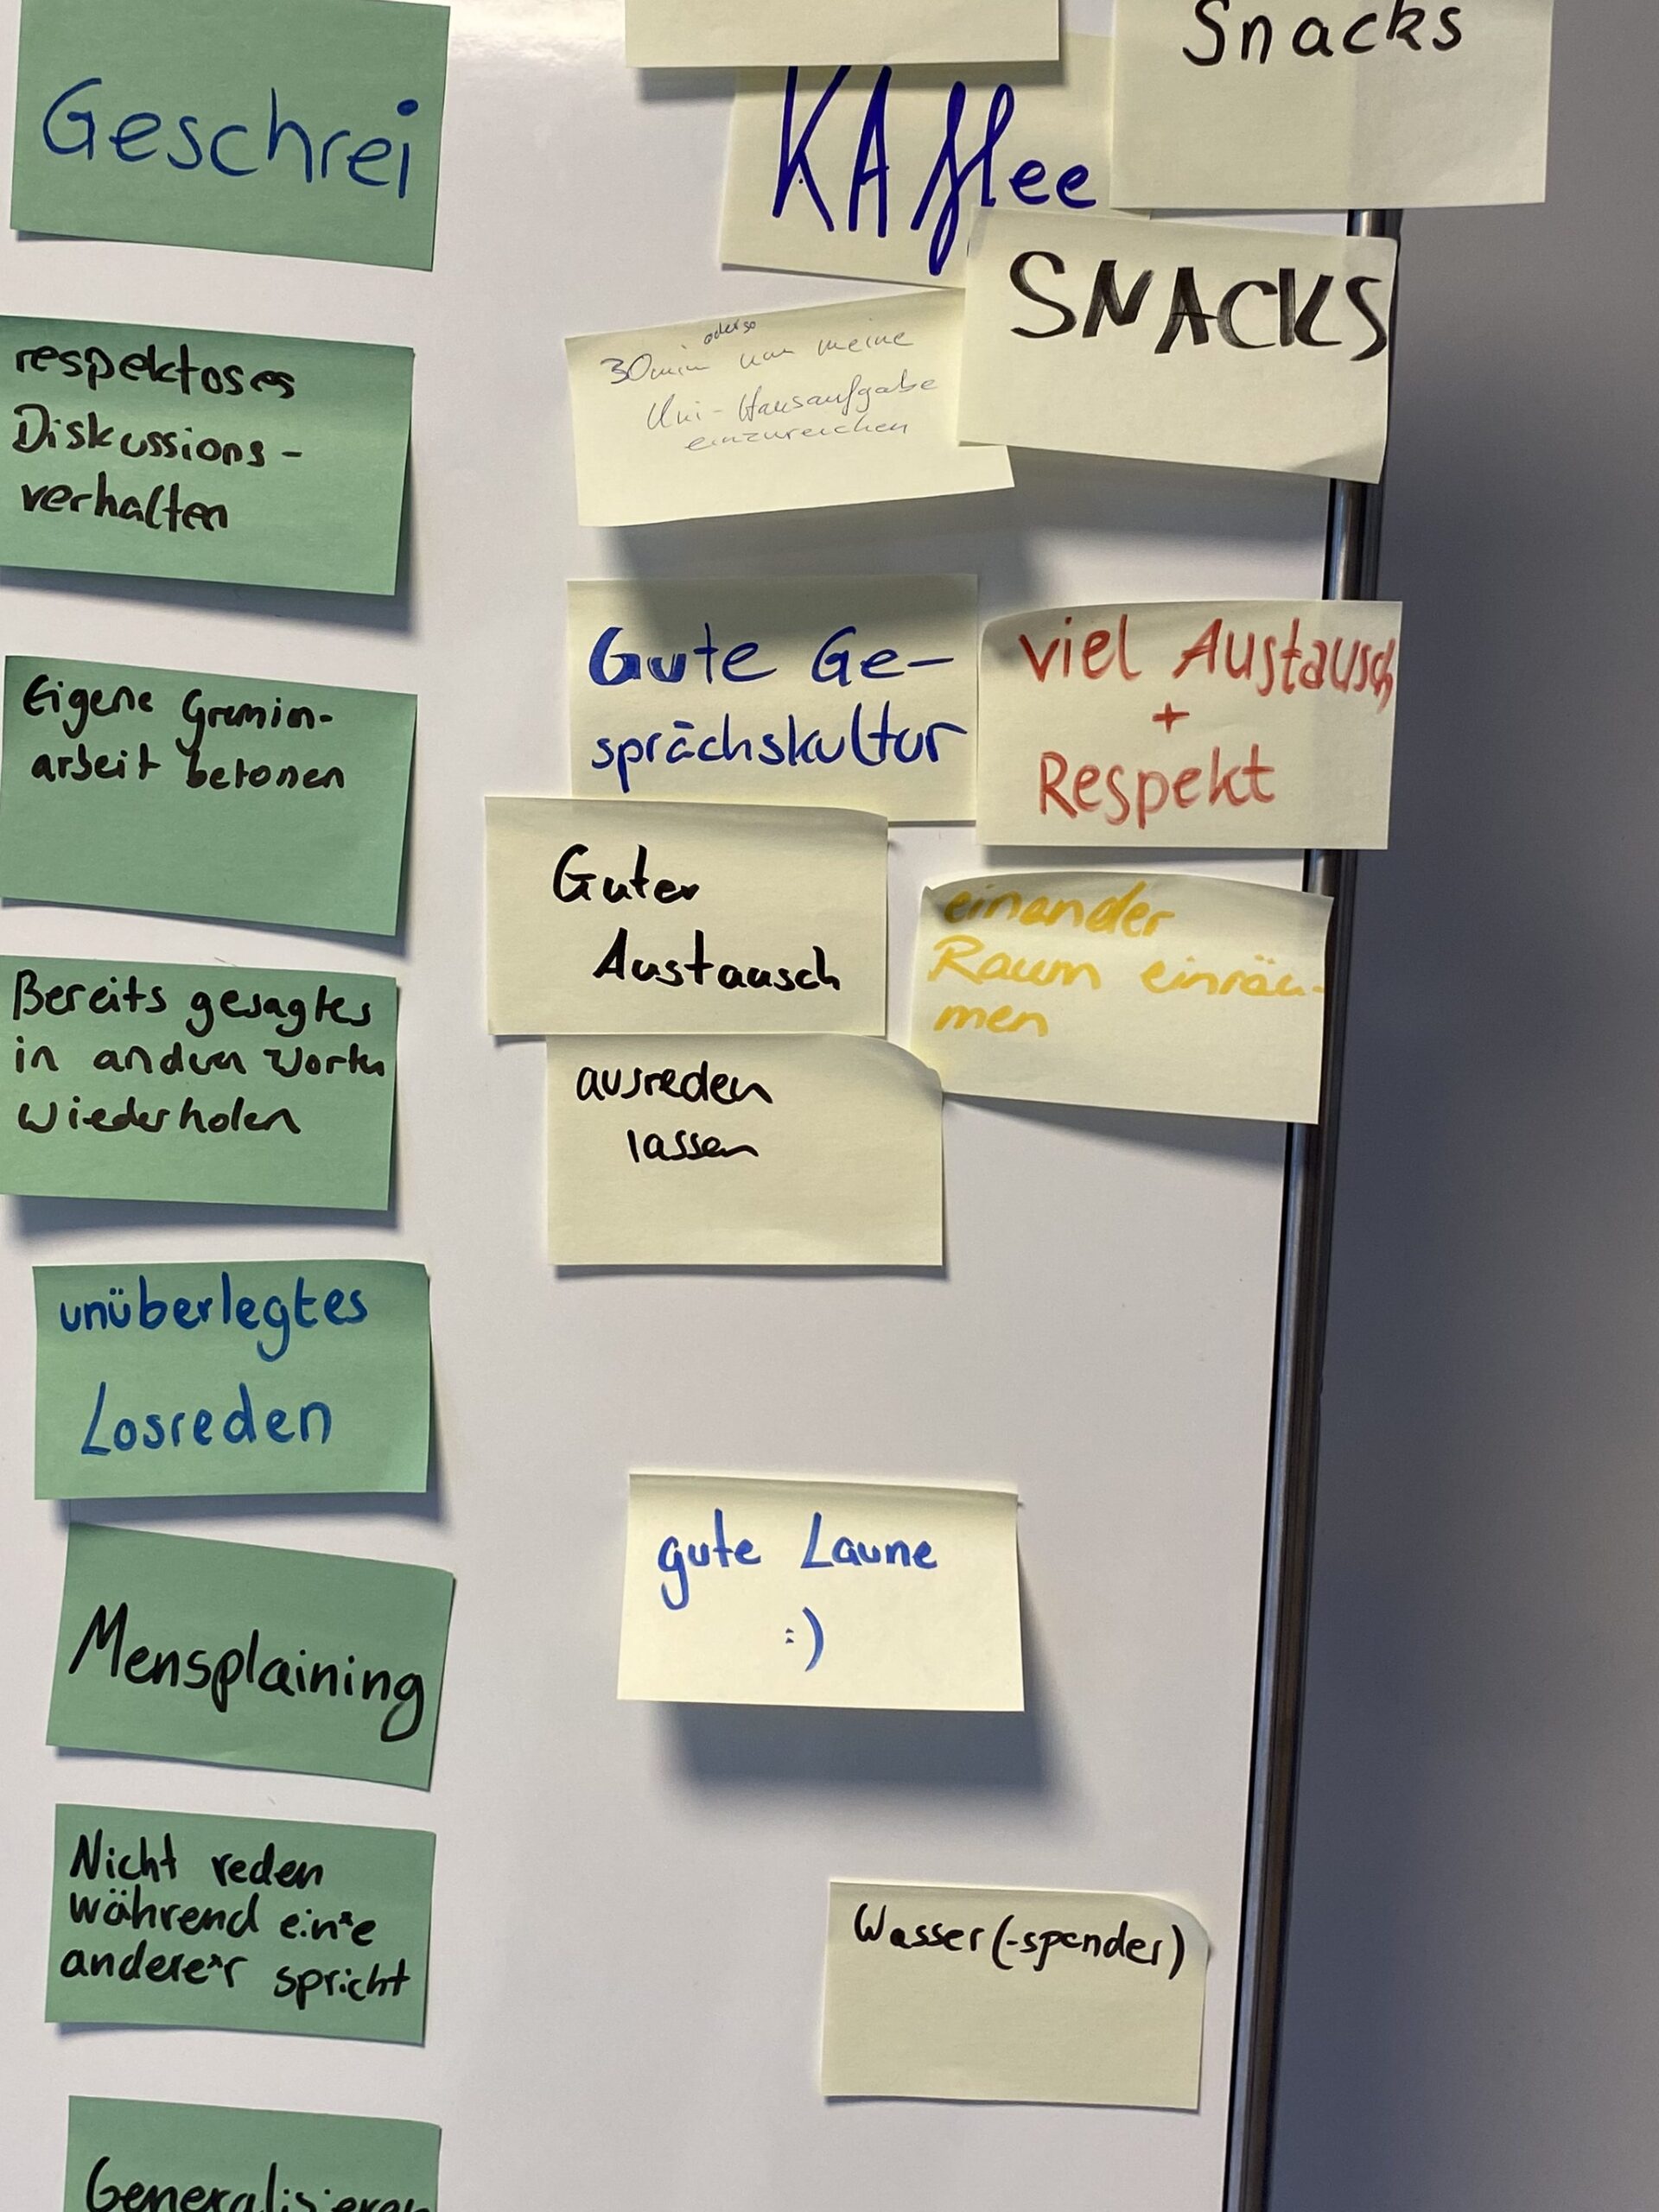 Geschrei
respektoses
Diskussions-
verhalten
Eigene Gremin-
arbeit betonen
Bereits gesagtes
in andren Worten
wiederholen
unüberlegtes
Losreden
Mensplaining
Nicht reden
während ein*e
andere*r spricht
Generalisieren
Snacks
KAffee
SNACKS
oder so
30min um meine
Uni-Hausaufgabe
einzureichen
Gute Ge-
sprächskultur
viel Austausch
+
Respekt
Guter
Austausch
einander
Raum einräu-
men
ausreden
lassen
gute Laune
:)
Wasser(-spender)